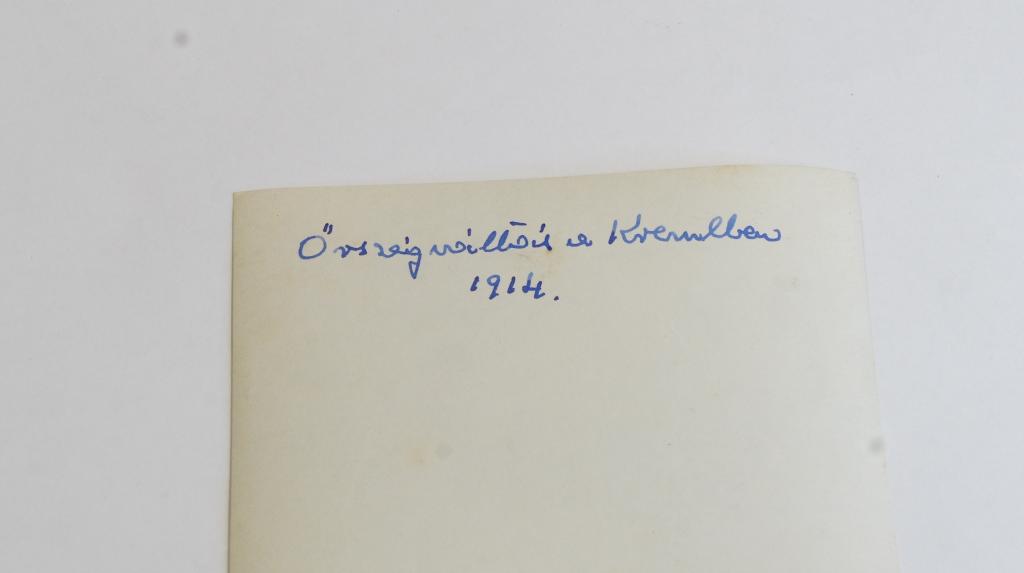 Őrségváltás a Kremlben
1914.